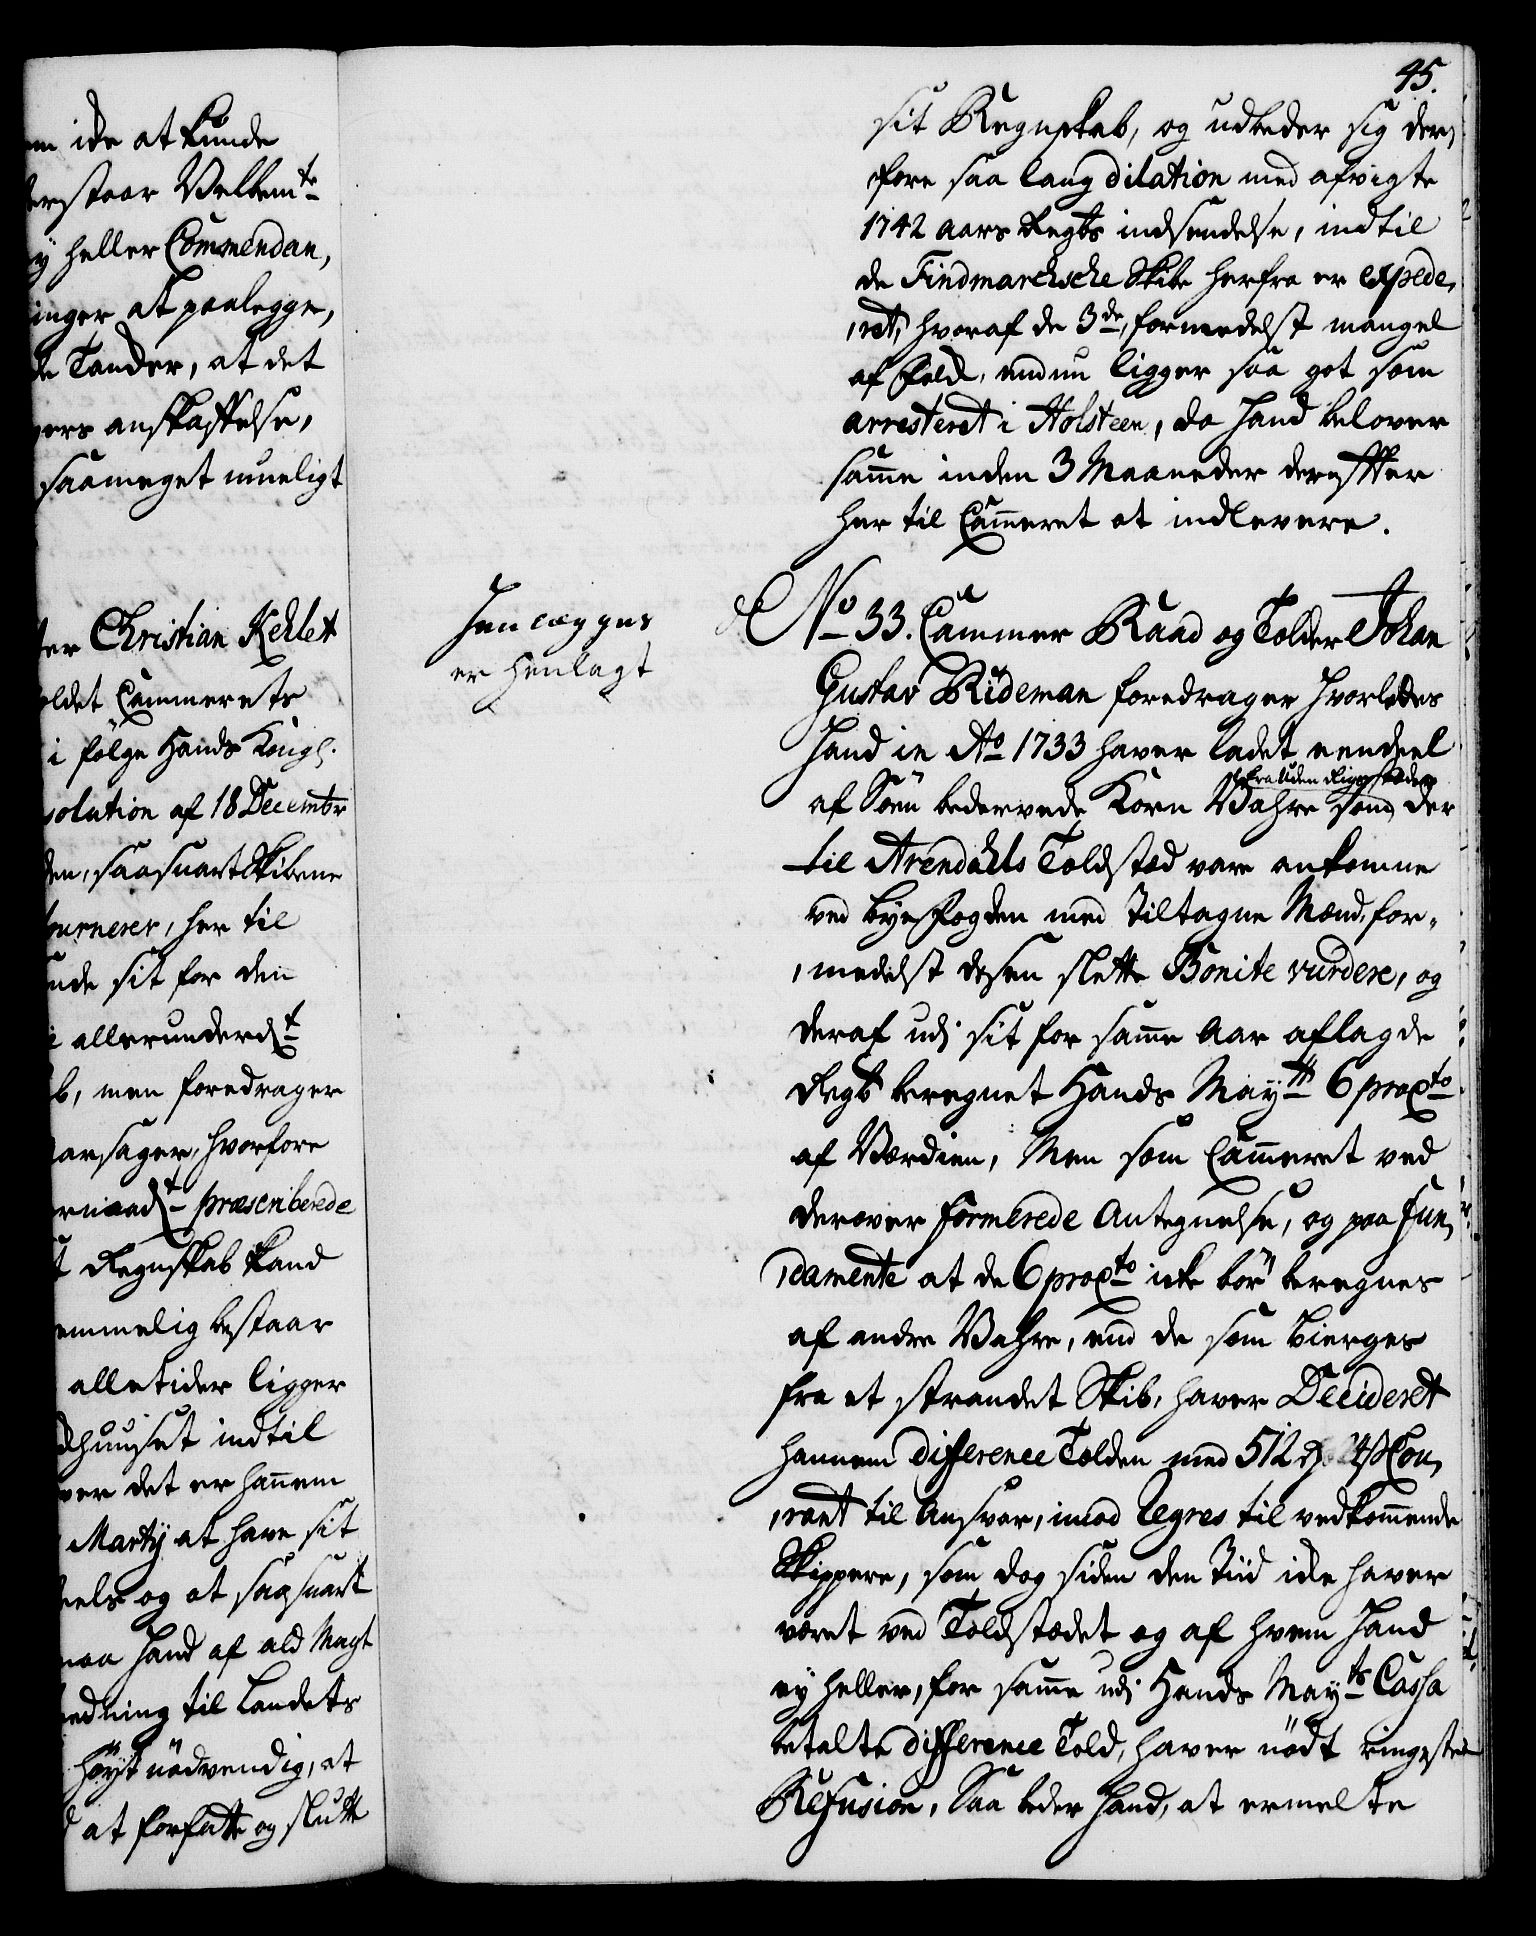 45.
em ike at kunde
erstaar Velbemte
y heller Commendan,
inger at paalegge,
de Tander, at det
vers anskaffelse,
saameget mueligt
ter Christian Kehlet
oldet Cammerets
i følge Hands Kongl.
solution af 18 Decembr
den, saasnart Skibene
tournerer, her til
nde sit for den
allerunderdt
b, men foredrager
aarsager, hvorfore
ernaadt præscriberede
t Regnskab kand
emmelig bestaar
alletider ligger
dhuuset indtil
ver det er hannem
Martij at have sit
eels og at saasnart
maa Hand af ald Magt
edning til Landets
høyst nødvendig, at
d at forfatte og slutte
sit Regnskab, og udbeder sig der,
fore saa lang dilation med afvigte
1742 aars Regbs indsendelse, indtil
de Findmarchsche Skibe herfra er expede,
,ret, hvoraf de 3de, formedelst mangel
af Folk, endnu ligger saa got som
arresteret i Holsteen, da Hand belover
samme inden 3 Maaneder derefter
her til Cammeret at indlevere.
Henlægges
er henlagt
No 33. Cammer Raad og Tolder Johan
Gustav Rideman foredrager hvorledes
Hand in Ao 1733 haver ladet eendeel
fra Uden Rigs stæder
af Søen bedervede Korn Vahre som der
til Arendahls Toldsted vare ankomne
ved Byefogden med tiltagne Mænd, for,
,medelst desen slette Bonite vurdere, og
deraf udi sit for samme Aar aflagde
Regb beregnet Hands Mayts 6 proCto
af Værdien, Men som Cammeret ved
derover formerede Antegnelse, og paa fun,
,damente at de 6 proCto icke bør beregnes
af andre Vahre, end de som bierges
fra et strandet Skib, haver Decideret
hannem difference Tolden med 512 rd 4 s Cou,
,rant til Ansvar, imod Regres til vedkommende
Skippere, som dog siden den Tiid ike haver
været ved Toldstædet og af hvem Hand
ey heller, for samme udi Hands Mayts Cassa
betalte difference Told, haver nødt ringeste
Refusion, Saa beder Hand, at ermelte